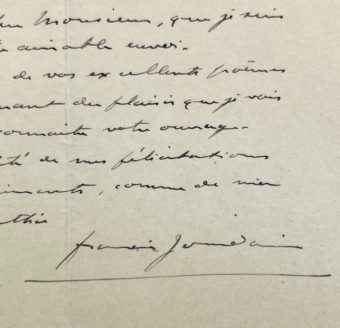 Monsieur, que je suis
aimable envoi.
de vos excellents poèmes
du plaisir que je vais
connaître votre ouvrage.
de mes félicitations
, comme de mon
Francis Jourdain